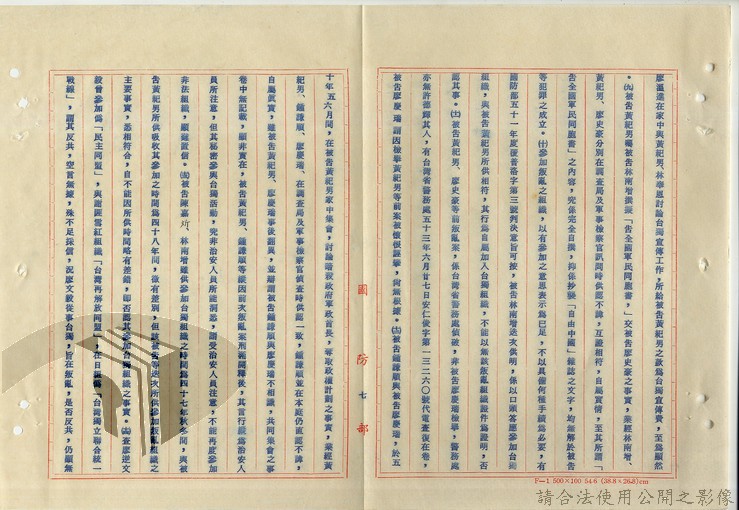 廖蘊達在家中與黃紀男、林奉恩討論台獨宣傳工作，所給被告黃紀男之款為台獨宣傳費，至為顯然
。㈨被告黃紀男囑被告林南增撰擬「告全國軍民同胞書」，交被告廖史豪之事實，業經林南增、
黃紀男、廖史豪分別在調查局及軍事檢察官訊問時供認不諱，互證相符，自屬實情，至其所謂「
告全國軍民同胞書」之內容，究係完全自撰，抑係抄襲「自由中國」雜誌之文字，均無解於被告
等犯罪之成立。㈩參加叛亂之組織，以有參加之意思表示為已足，不以具備何種手續為必要，有
國防部五十一年度覆普洛字第三號判決意旨可按，被告林南增迭次供明，係以口頭答應參加台獨
組織，與被告黃紀男所供相符，其行為自屬加入台獨組織，不能以無該叛亂組織證件為證明，否
認其事。㈪被告黃紀男、廖史豪等前叛亂案，係台灣省警務處偵破，非被告廖慶瑞檢舉，警務處
亦無許德輝其人，有台灣省警務處五十三年六月廿七日安仁後字第一三二六〇號代電查復在卷，
被告廖慶瑞謂因檢舉黃紀男等前案被懷恨誣攀，尚無根據。㈫被告鍾謙順與被告廖慶瑞，於五
十年五六月間，在被告黃紀男家中集會，討論暗殺政府軍政首長，奪取政權計劃之事實，業經黃
紀男、鍾謙順、廖慶瑞、在調查局及軍事檢察官偵查時供認一致，鍾謙順並在本庭仍直認不諱，
自屬真實，雖被告黃紀男、廖慶瑞事後翻異，並辯謂被告鍾謙順與廖慶瑞不相識，共同集會之事
卷中無記載，顯非實在，被告黃紀男、鍾謙順等縱因前次叛亂案刑期開釋後，其言行縱為治安人
員所注意，但其秘密參與台獨活動，究非治安人員所能洞悉，謂受治安人員注意，不能再度參加
非法組織，顯難置信。㈬被告陳嘉炘、林南增雖供參加台獨組織之時間為四十七年秋冬間，與被
告黃紀男所供吸收其參加之時間為四十八年間，微有差別，但該被告等迭次所供參加叛亂組織之
主要事實，悉相符合，自不能因所供時間略有差錯，即否認其參加台獨組織之事實。㈭查廖逆文
毅曾參加偽「民主同盟」，與謝匪雪紅組織「台灣再解放同盟」，在日組偽「台灣獨立聯合統一
戰線」，謂其反共，空言無據，殊不足採信，況廖文毅從事台獨，旨在叛亂，是否反共，仍顯無
國防部
七
F—1 500×100 54·6 (38.8×26.8)cm
請合法使用公開之影像